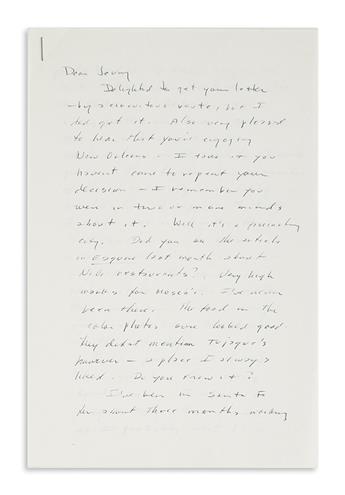 Dear Jerry
Delighted to get your letter
– by a circuitous route, but I
did get it. Also very pleased
to hear that you're enjoying
New Orleans – I take it you
haven't come to repent your
decision – I remember you
were in two or more minds
about it. Well it's a
city. Did you see the article
in Esquire last month about
N.O. restaurants? Very high
marks for Mosca's. I've never
been there. The food in the
color photos sure looked good.
They didn't mention Tujaque's
however – a place I always
liked. Do you know it?
I've been in Santa Fe
for about three months working